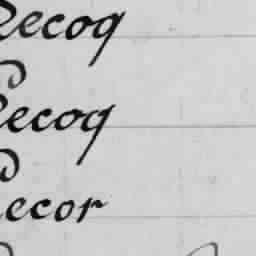 Recog
Recog
Recor